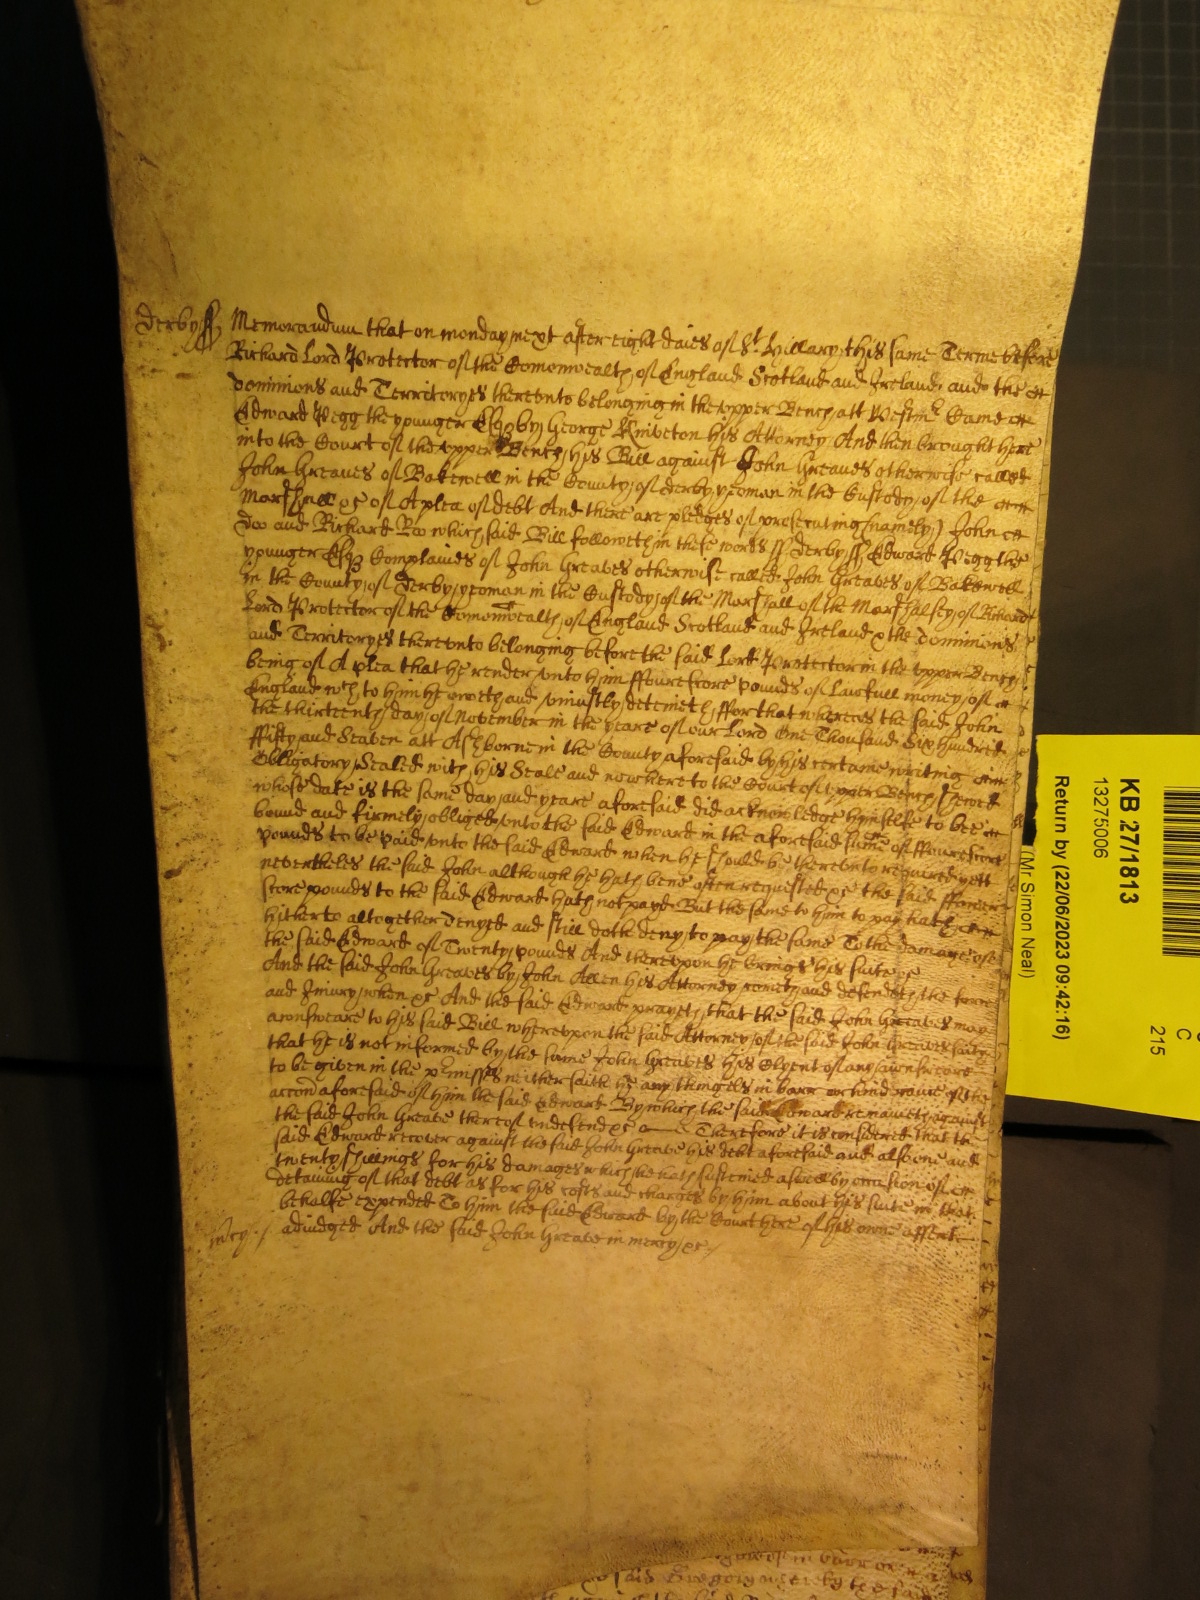 derby ss Memorandum that on monday next after eight daies of St. Hillary this same Terme before
Richard Lord Protector of the Comonwealth of England Scotland and Ireland and the
dominions and Territoryes thereunto belonging in the upper Bench att Westmr Came
Edward Pegg the younger Esqr by George Kniveton his Attorney And then brought here
into the Court of the upper Bench his Bill against John Greaves otherwise called
John Greaves of Bakewell in the County of derby yeoman in the Custody of the
Marshall &c of A plea of debt And there are pledges of prosecuting (namely) John
doo and Richard Roo which said Bill followeth in these words ss derby ss Edward Pegg the
younger Esqr Complaines of John Greaves otherwise called John Greaves of Bakewell
in the County of Derby yeoman in the Custody of the Marshall of the Marshalsey of Richard
Lord Protector of the Comonwealth of England Scotland and Ireland & the dominions
and Territoryes thereunto belonging before the said Lord Protector in the upper Bench
being of A plea that he render unto him ffourescore pounds of Lawfull money of
England wch to him he oweth and uniustly deteineth ffor that whereas the said John
the thirteenth day of November in the yeare of our Lord One Thousand Six hundred
ffifty and Seaven att Ashborne in the County aforesaid by his certaine writing
Obligatory Sealed with his Seale and now here to the Court of upper Bench shewed
whose date is the same day and yeare aforesaid did acknowledge himselfe to bee
bound and firmely obliged unto the said Edward in the aforesaid sume of ffourescore
pounds to be paid unto the said Edward when he should be thereunto required yett
nevertheles the said John although he hath bene often requested &c the said ffouer
score pounds to the said Edward hath not payd But the same to him to pay hath
hitherto altogether denyed and still doth deny to pay the same To the damage of
the said Edward of Twenty pounds And thereupon he brings his suite &c
And the said John Greaves by John Allen his Attorney cometh and defendeth the force
and Iniury when &c And the said Edward prayeth that the said John Greaves may
aronsweare to his said Bill whereupon the said Attorney of the said John Greaves saith
that he is not informed by the same John Greaves his Clyent of any aunsweare
to be given in the p'misses neither saith he any thinge els in barr or hindrance of the
accon aforesaid of him the said Edward By which the said Edward remaineth against
the said John Greave thereof undefend &c Therefore it is considered that the
said Edward recover against the said John Greave his debt aforesaid and alsoe and
twenty shillings for his damages which he hath susteined aswell by occasion of
detaining of that debt as for his costs and charges by him about his suite in that
behalfe expended To him the said Edward by the Court here of his owne assent
mcy adiudged And the said John Greave in mercy &c
KB 27/1813
13275006
Return by (22/06/2023 09:42:16)
(Mr Simon Neal)
C
215